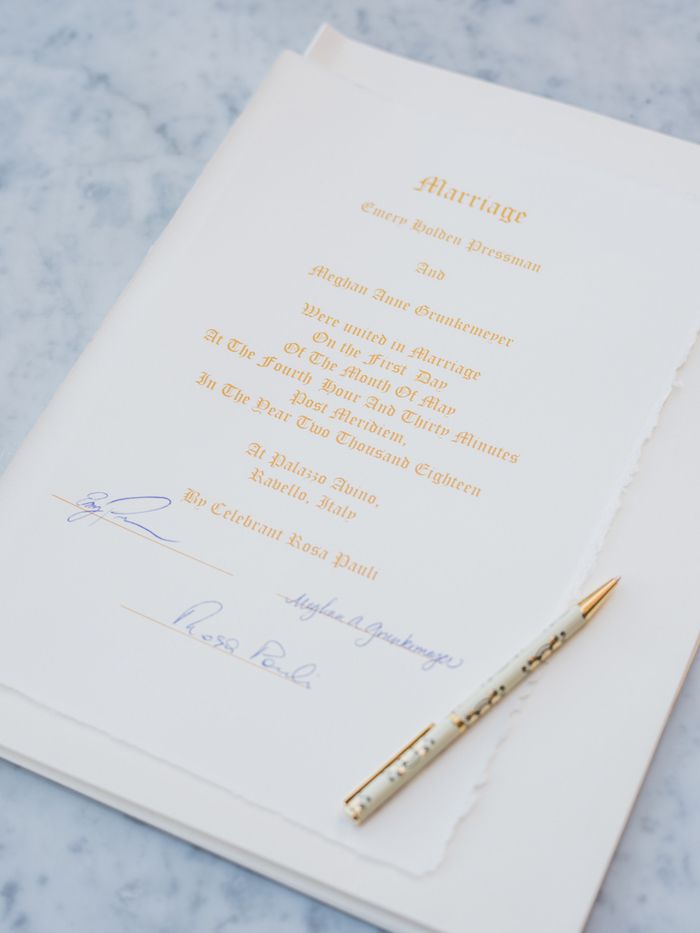 Marriage
Emery Holden Pressman
And
Meghan Anne Grunkemeyer
Were united in Marriage
On the First Day
Of The Month Of May
At The Fourth Hour And Thirty Minutes
Post Meridiem,
In The Year Two Thousand Eighteen
At Palazzo Avino,
Ravello, Italy
By Celebrant Rosa Pauli
Meghan A Grunkemeyer
Rosa Pauli